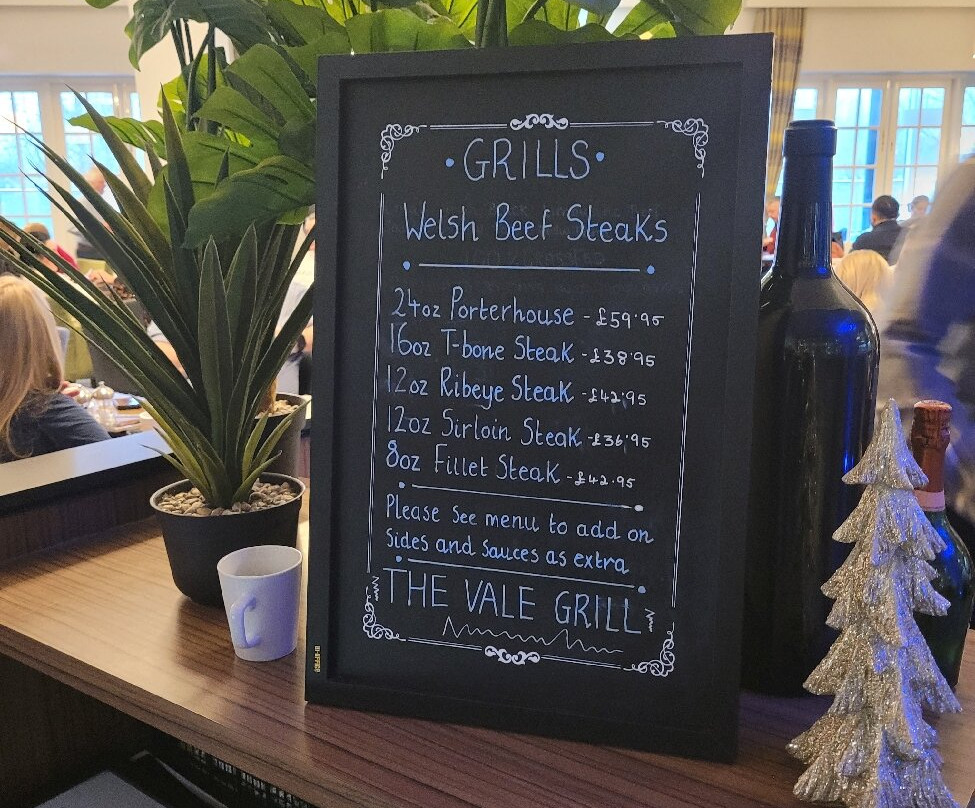 • GRILLS •
Welsh Beef Steaks
24oz Porterhouse - £59.95
16oz T-bone Steak - £38.95
12oz Ribeye Steak - £42.95
12oz Sirloin Steak - £36.95
8oz Fillet Steak - £42.95
Please see menu to add on
sides and sauces as extra
THE VALE GRILL